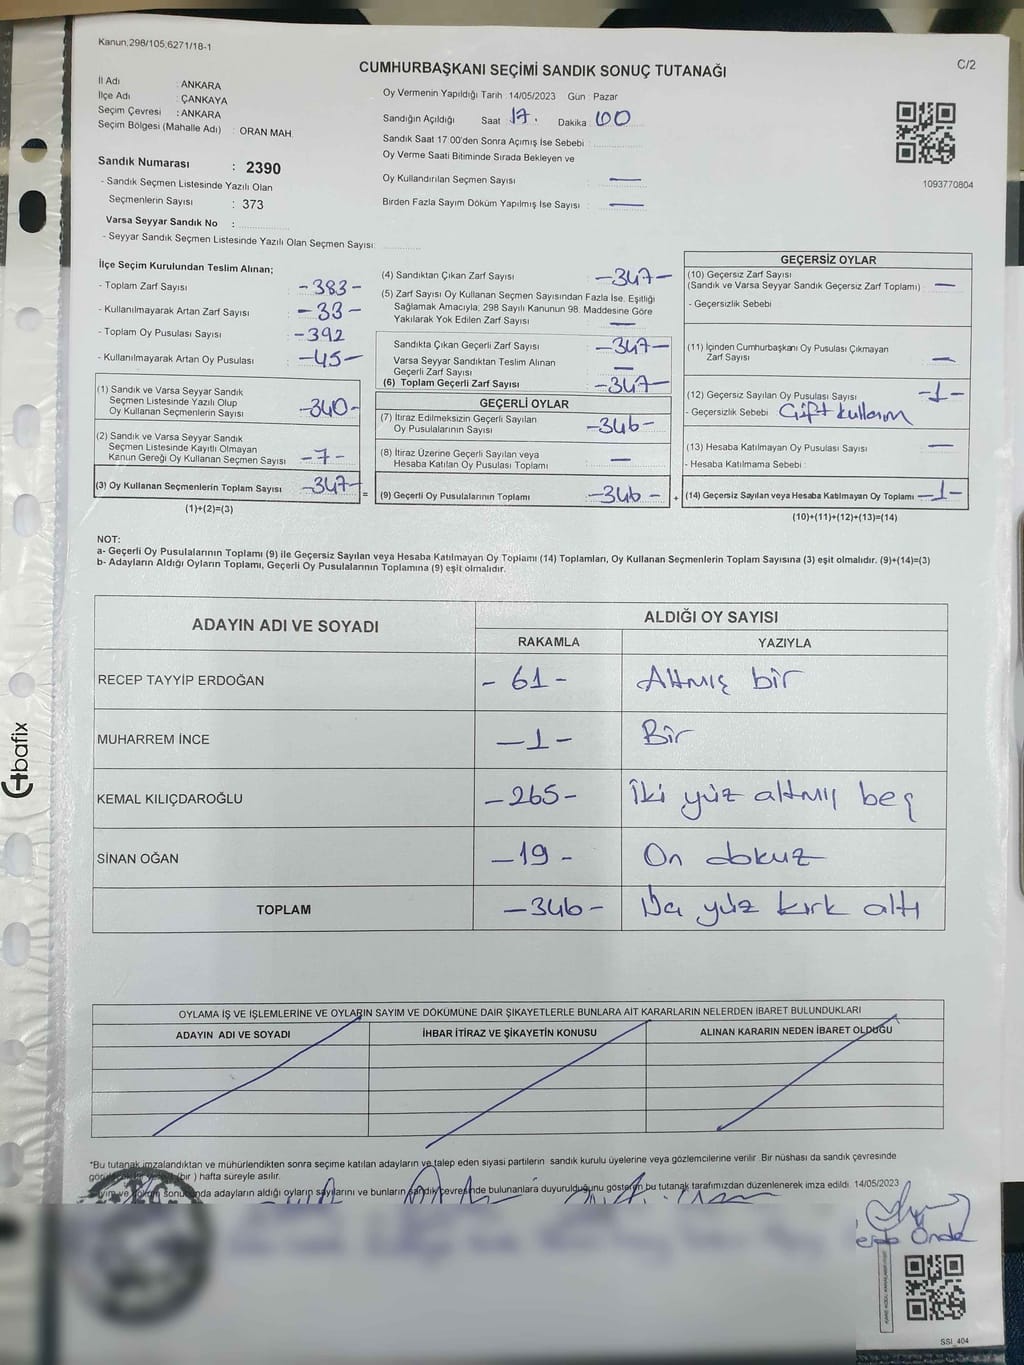 Kanun,298/105;6271/18-1
C/2
CUMHURBAŞKANI SEÇİMİ SANDIK SONUÇ TUTANAĞI
İl Adı : ANKARA
İlçe Adı : ÇANKAYA
Seçim Çevresi : ANKARA
Seçim Bölgesi (Mahalle Adı) : ORAN MAH.
Sandık Numarası : 2390
- Sandık Seçmen Listesinde Yazılı Olan
Seçmenlerin Sayısı : 373
Varsa Seyyar Sandık No :
- Seyyar Sandık Seçmen Listesinde Yazılı Olan Seçmen Sayısı:
Oy Vermenin Yapıldığı Tarih : 14/05/2023 Gün : Pazar
Sandığın Açıldığı Saat 17. Dakika 00
Sandık Saat 17:00'den Sonra Açımış İse Sebebi :
Oy Verme Saati Bitiminde Sırada Bekleyen ve
Oy Kullandırılan Seçmen Sayısı : —
Birden Fazla Sayım Döküm Yapılmış İse Sayısı : —
1093770804
İlçe Seçim Kurulundan Teslim Alınan;
- Toplam Zarf Sayısı : -383-
- Kullanılmayarak Artan Zarf Sayısı : -33-
- Toplam Oy Pusulası Sayısı : -392
- Kullanılmayarak Artan Oy Pusulası : -45-
(1) Sandık ve Varsa Seyyar Sandık
Seçmen Listesinde Yazılı Olup
Oy Kullanan Seçmenlerin Sayısı -340-
(2) Sandık ve Varsa Seyyar Sandık
Seçmen Listesinde Kayıtlı Olmayan
Kanun Gereği Oy Kullanan Seçmen Sayısı -7-
(3) Oy Kullanan Seçmenlerin Toplam Sayısı -347-
(1)+(2)=(3)
(4) Sandıktan Çıkan Zarf Sayısı -347-
(5) Zarf Sayısı Oy Kullanan Seçmen Sayısından Fazla İse, Eşitliği
Sağlamak Amacıyla; 298 Sayılı Kanunun 98. Maddesine Göre
Yakılarak Yok Edilen Zarf Sayısı —
Sandıkta Çıkan Geçerli Zarf Sayısı -347-
Varsa Seyyar Sandıktan Teslim Alınan
Geçerli Zarf Sayısı —
(6) Toplam Geçerli Zarf Sayısı -347-
GEÇERLİ OYLAR
(7) İtiraz Edilmeksizin Geçerli Sayılan
Oy Pusulalarının Sayısı -346-
(8) İtiraz Üzerine Geçerli Sayılan veya
Hesaba Katılan Oy Pusulası Toplamı —
= (9) Geçerli Oy Pusulalarının Toplamı -346-
GEÇERSİZ OYLAR
(10) Geçersiz Zarf Sayısı
(Sandık ve Varsa Seyyar Sandık Geçersiz Zarf Toplamı) —
- Geçersizlik Sebebi :
(11) İçinden Cumhurbaşkanı Oy Pusulası Çıkmayan
Zarf Sayısı —
(12) Geçersiz Sayılan Oy Pusulası Sayısı -1-
- Geçersizlik Sebebi : Çift kullanım
(13) Hesaba Katılmayan Oy Pusulası Sayısı —
- Hesaba Katılmama Sebebi :
+ (14) Geçersiz Sayılan veya Hesaba Katılmayan Oy Toplamı -1-
(10)+(11)+(12)+(13)=(14)
NOT:
a- Geçerli Oy Pusulalarının Toplamı (9) ile Geçersiz Sayılan veya Hesaba Katılmayan Oy Toplamı (14) Toplamları, Oy Kullanan Seçmenlerin Toplam Sayısına (3) eşit olmalıdır. (9)+(14)=(3)
b- Adayların Aldığı Oyların Toplamı, Geçerli Oy Pusulalarının Toplamına (9) eşit olmalıdır.
ADAYIN ADI VE SOYADI ALDIĞI OY SAYISI
RAKAMLA YAZIYLA
RECEP TAYYİP ERDOĞAN - 61 - Altmış bir
MUHARREM İNCE -1- Bir
KEMAL KILIÇDAROĞLU -265- İki yüz altmış beş
SİNAN OĞAN -19- On dokuz
TOPLAM -346- Üç yüz kırk altı
OYLAMA İŞ VE İŞLEMLERİNE VE OYLARIN SAYIM VE DÖKÜMÜNE DAİR ŞİKAYETLERLE BUNLARA AİT KARARLARIN NELERDEN İBARET BULUNDUKLARI
ADAYIN ADI VE SOYADI İHBAR İTİRAZ VE ŞİKAYETİN KONUSU ALINAN KARARIN NEDEN İBARET OLDUĞU
*Bu tutanak imzalandıktan ve mühürlendikten sonra seçime katılan adayların ve talep eden siyasi partilerin sandık kurulu üyelerine veya gözlemcilerine verilir. Bir nüshası da sandık çevresinde
(bir) hafta süreyle asılır.
Sayım ve döküm sonucunda adayların aldığı oyların sayılarını ve bunların sandık çevresinde bulunanlara duyurulduğunu gösteren bu tutanak tarafımızdan düzenlenerek imza edildi. 14/05/2023
SSI_404
bafix